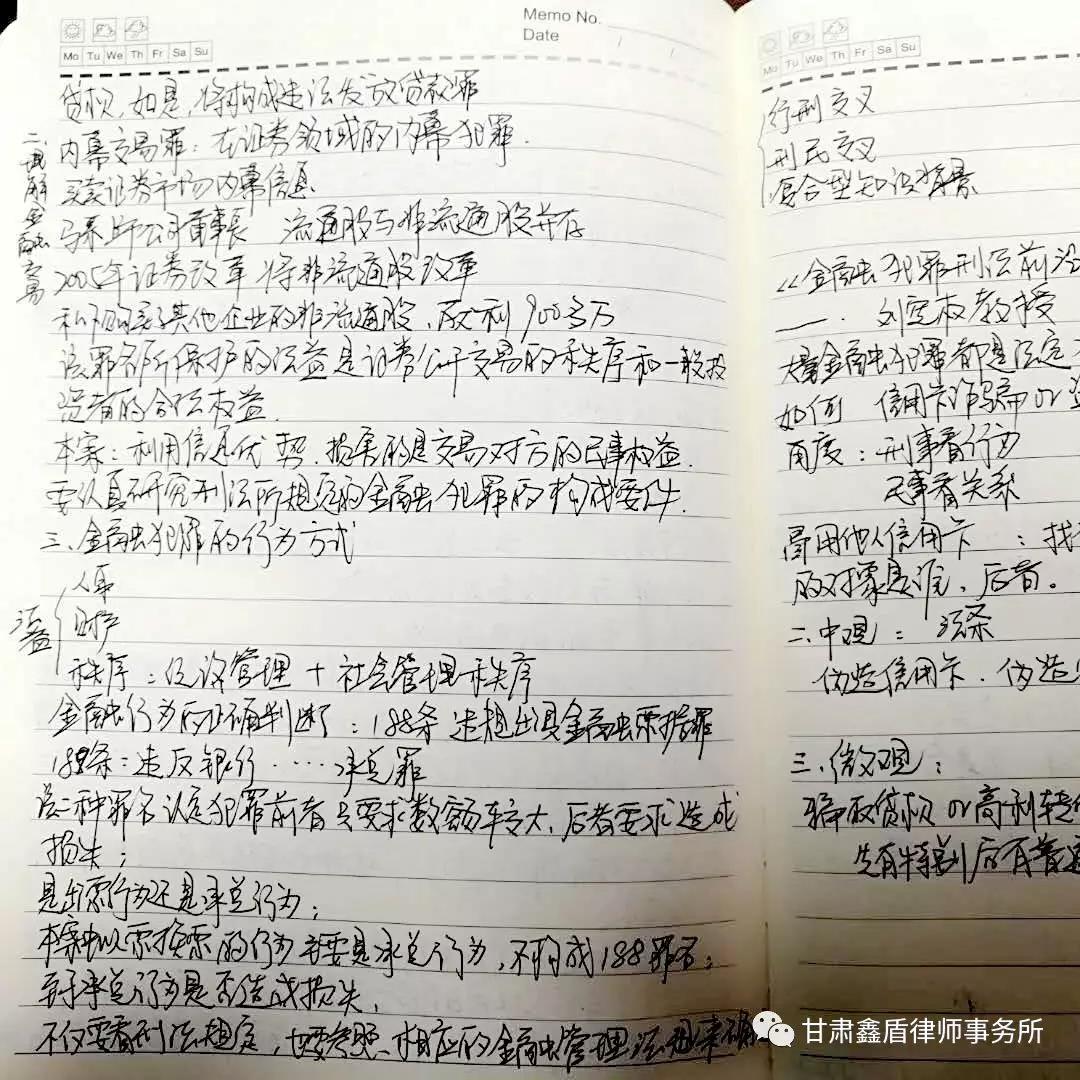 Memo No.
Date
Mo Tu We Th Fr Sa Su
贷权,如是,将构成违法发放贷款罪
二、
内幕交易罪:在证券领域的内幕犯罪.
解金融
买卖证券市场内幕信息
马某上市公司董事长 流通股与非流通股并存
2005年证券改革 将非流通股改革
私下购买其他企业的非流通股,获利900多万
该罪名所保护的法益是证券公开交易的秩序和一般投
资者的合法权益.
本案:利用信息优势,损害的是交易对方的民事权益.
要认真研究刑法所规定的金融犯罪的构成要件.
三、金融犯罪的行为方式
法益
人身
财产
秩序:经济管理+社会管理秩序
金融行为的正确判断:188条 违规出具金融票据罪
189条:违反银行……承兑罪
该二种罪名认定犯罪前者只要求数额较大,后者要求造成
损失;
是出票行为还是承兑行为;
本案中以票换票的行为主要是承兑行为,不构成188罪名;
至于承兑行为是否造成损失,
不仅要看刑法规定,也要参照、相应的金融管理法规来确
Mo Tu We Th Fr Sa Su
行刑交叉
刑民交叉
复合型知识背景
《金融犯罪刑法前沿
一. 刘宪权教授
大量金融犯罪都是法定
如何 信用卡诈骗 or
角度:刑事看行为
民事看关系
冒用他人信用卡 :找
的对象是谁、后者。
二、中观: 法条
伪造信用卡.伪造
三、微观:
骗取贷款 or 高利转
先有特别后有普通
甘肃鑫盾律师事务所